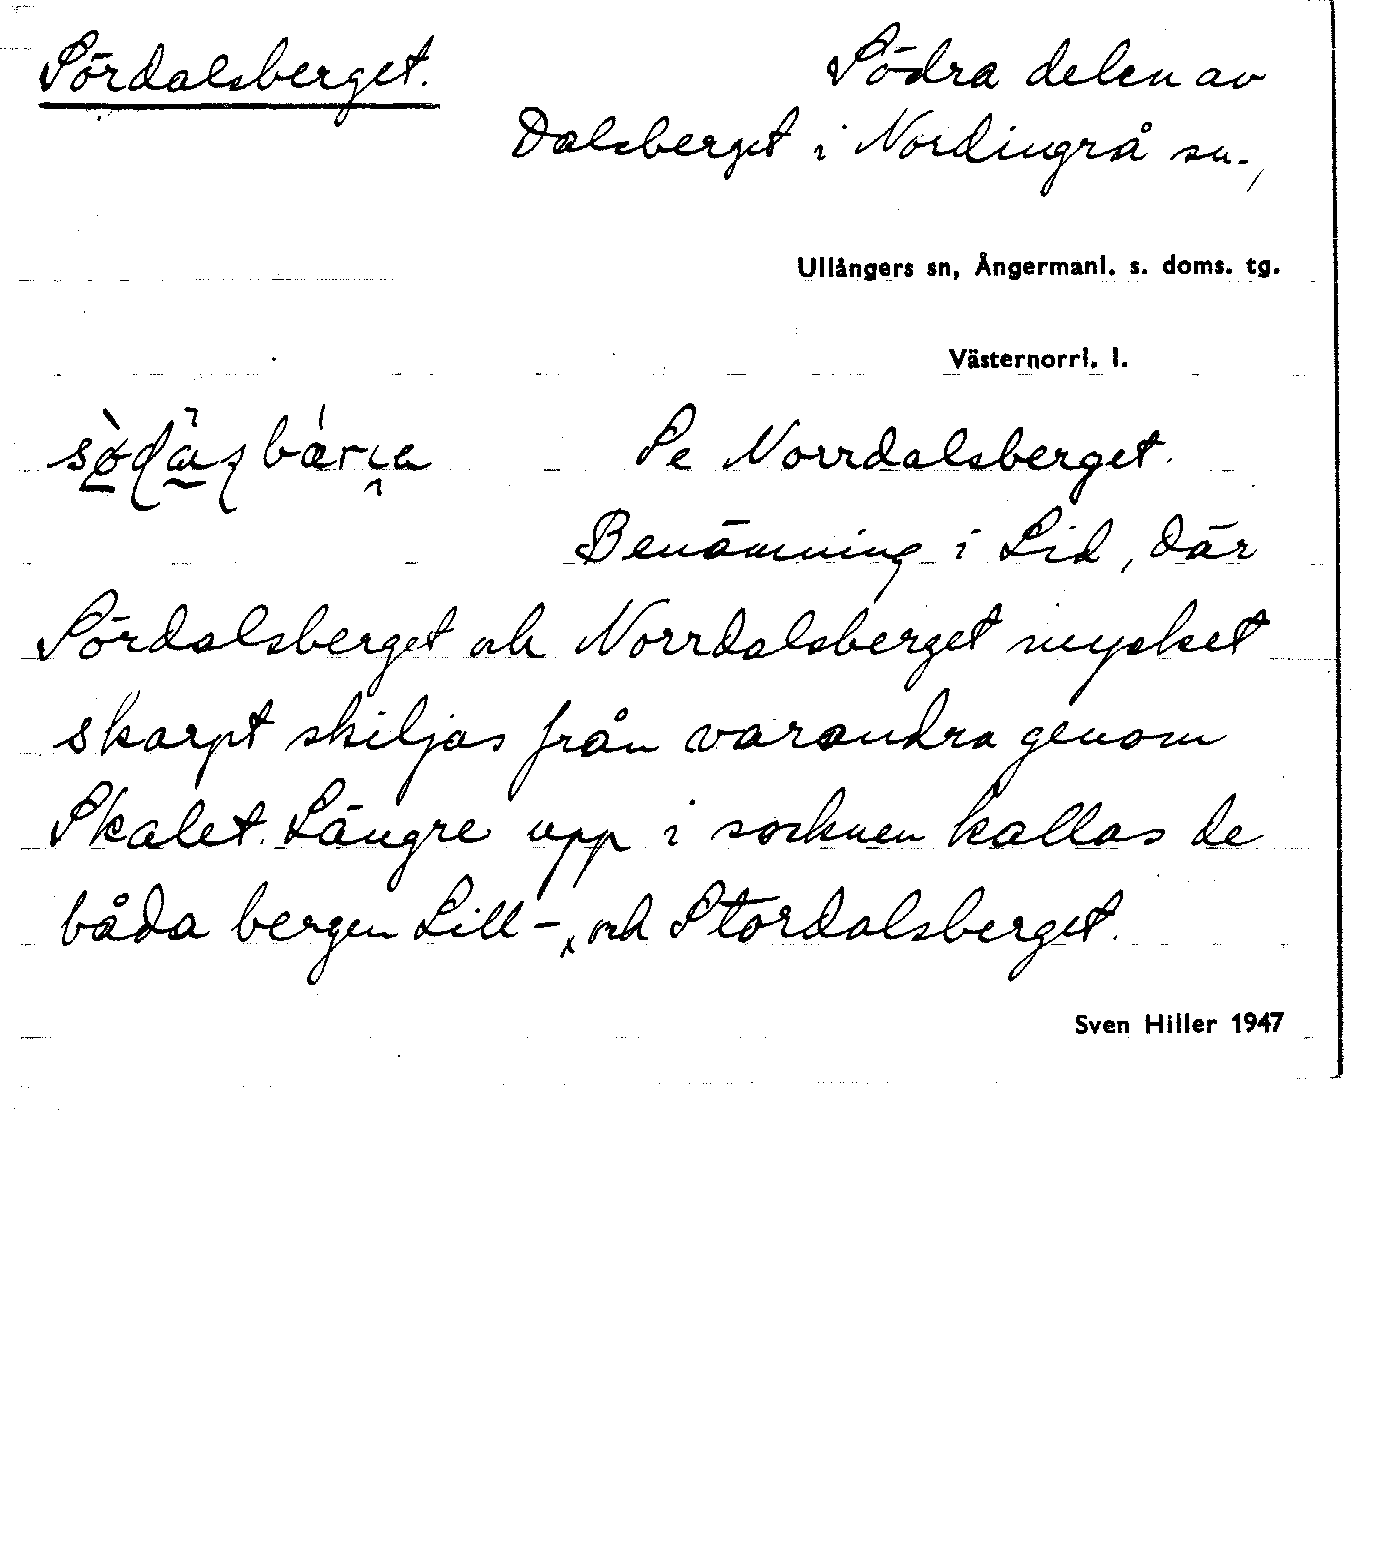 Sördalsberget.
Södra delen av
Dalsberget i Nordingrå sn.,
Ullångers sn, Ångermanl. s. doms. tg.
Västernorrl. l.
Se Norrdalsberget.
Benämning i Lid, där
Sördalsberget och Norrdalsberget mycket
skarpt skiljas från varandra genom
Skalet. Längre upp i socknen kallas de
båda bergen Lill- och Stordalsberget.
Sven Hiller 1947